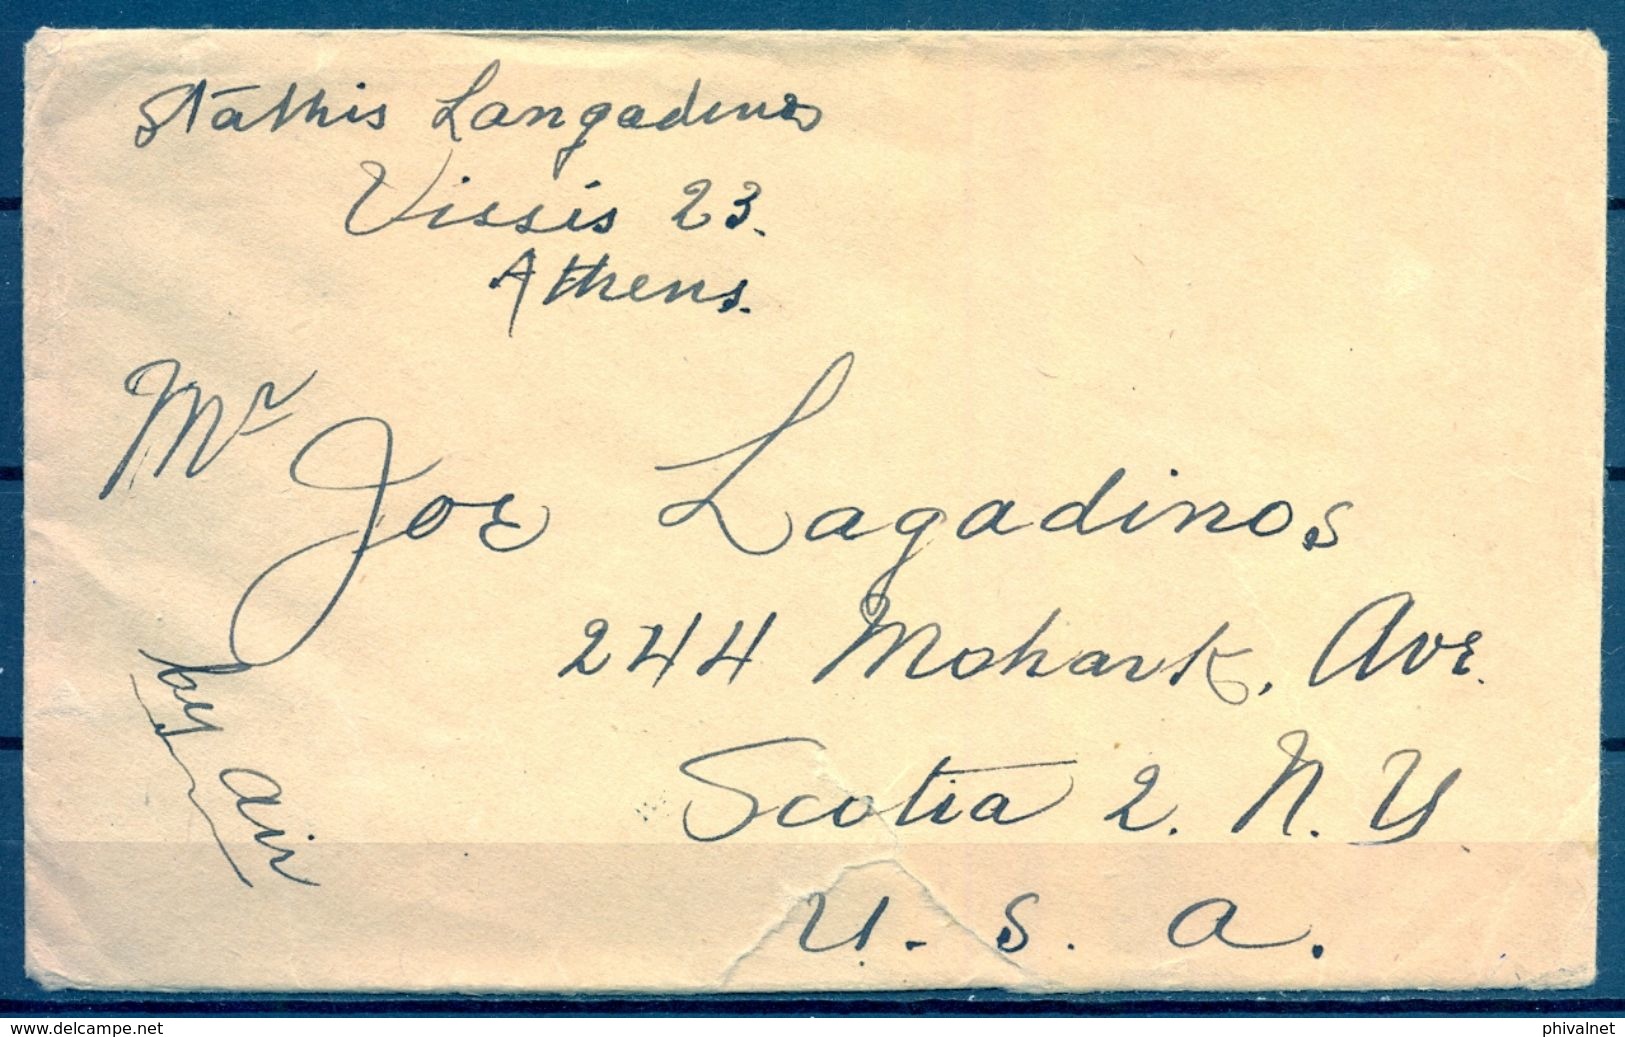 Stathis Langadinos
Vissis 23.
Athens.
Mr Joe Lagadinos
244 Mohark, Ave.
Scotia 2. N. Y
U. S. A.
by air
www.delcampe.net
phivalnet